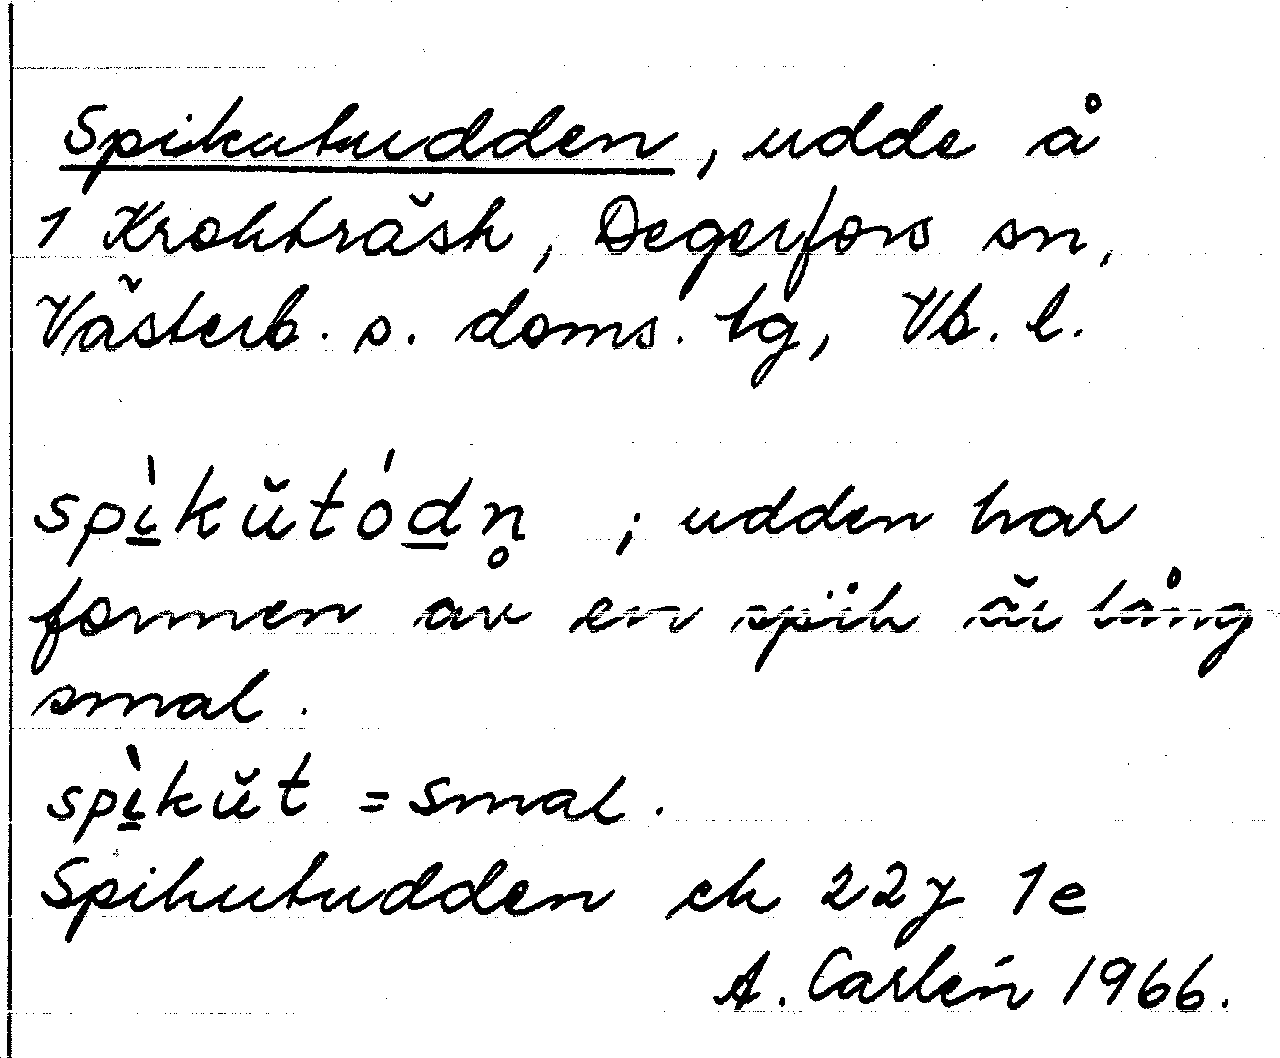 Spikutudden, udde å
1 Krokträsk, Degerfors sn,
Västerb. s. doms. tg, Vb. l.
spì̲kŭtód̲n̥ ; udden har
formen av en spik är lång
smal.
spì̲kŭt = smal.
Spikutudden ek 22J 1e
A. Carlén 1966.